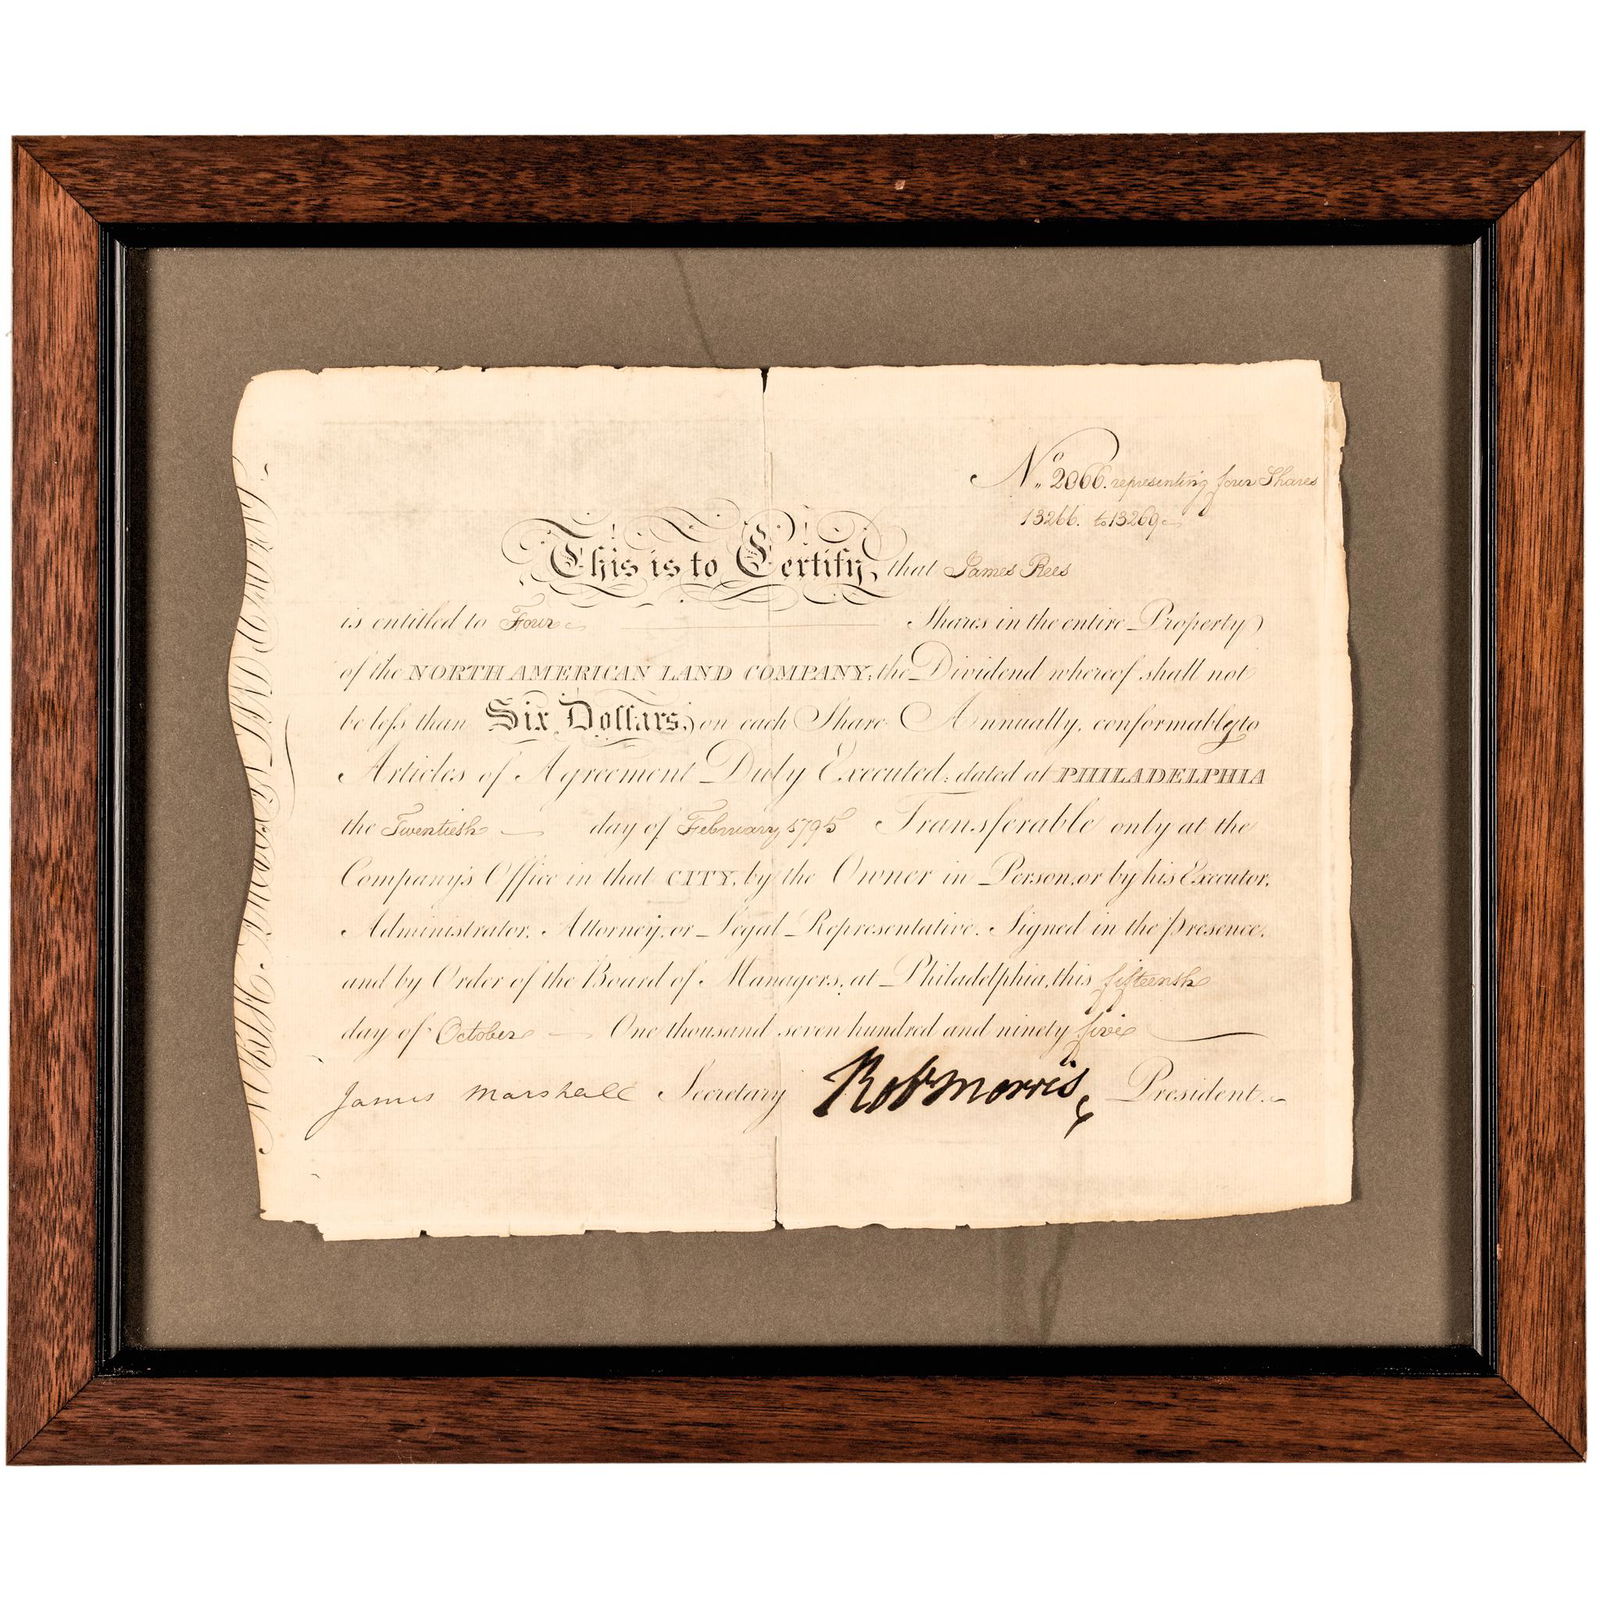 No. 2066. representing four Shares
13266. to 13269
This is to Certify, that James Rees
is entitled to Four Shares in the entire Property
of the NORTH AMERICAN LAND COMPANY; the Dividend whereof shall not
be less than Six Dollars, on each Share Annually, conformably to
Articles of Agreement Duly Executed; dated at PHILADELPHIA
the Twentieth day of February 1795 Transferable only at the
Company's Office in that CITY, by the Owner in Person, or by his Executor,
Administrator, Attorney, or Legal Representative. Signed in the presence,
and by Order of the Board of Managers, at Philadelphia, this fifteenth
day of October One thousand seven hundred and ninety five
James Marshall Secretary Robt Morris President.